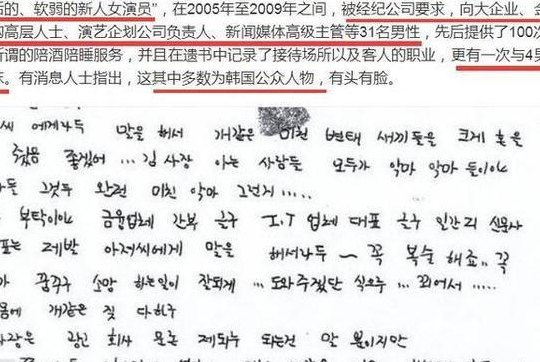 的、软弱的新人女演员”，在2005年至2009年之间，被经纪公司要求，向大企业、金
高层人士、演艺企划公司负责人、新闻媒体高级主管等31名男性，先后提供了100次
所谓的陪酒陪睡服务，并且在遗书中记录了接待场所以及客人的职业，更有一次与4男
床。有消息人士指出，这其中多数为韩国公众人物，有头有脸。
씨 에게나두 말을 해서 개같은 미친 변태 새끼들을 크게 혼을
줬음 좋겠어 ... 김 사장 아는 사람들 모두가 악마 악마 들이야
들 그것두 완전 미친 악마 그런거 .....
부탁이야 금융업체 간부 글구 I.T 업체 대표 글구 일간지 신문사
표는 제발 아저씨에게 말을 해서나두 ~ 꼭 복수 해죠.. 꼭
가 꿈꾸구 소망 하는일이 잘되게 ... 도와주겠단 식으루 ... 꾀어서 .....
몸에 개같은 짓 다하구
사장은 광고 회사 문론 제퇴두 되는건 말 뿐이지만